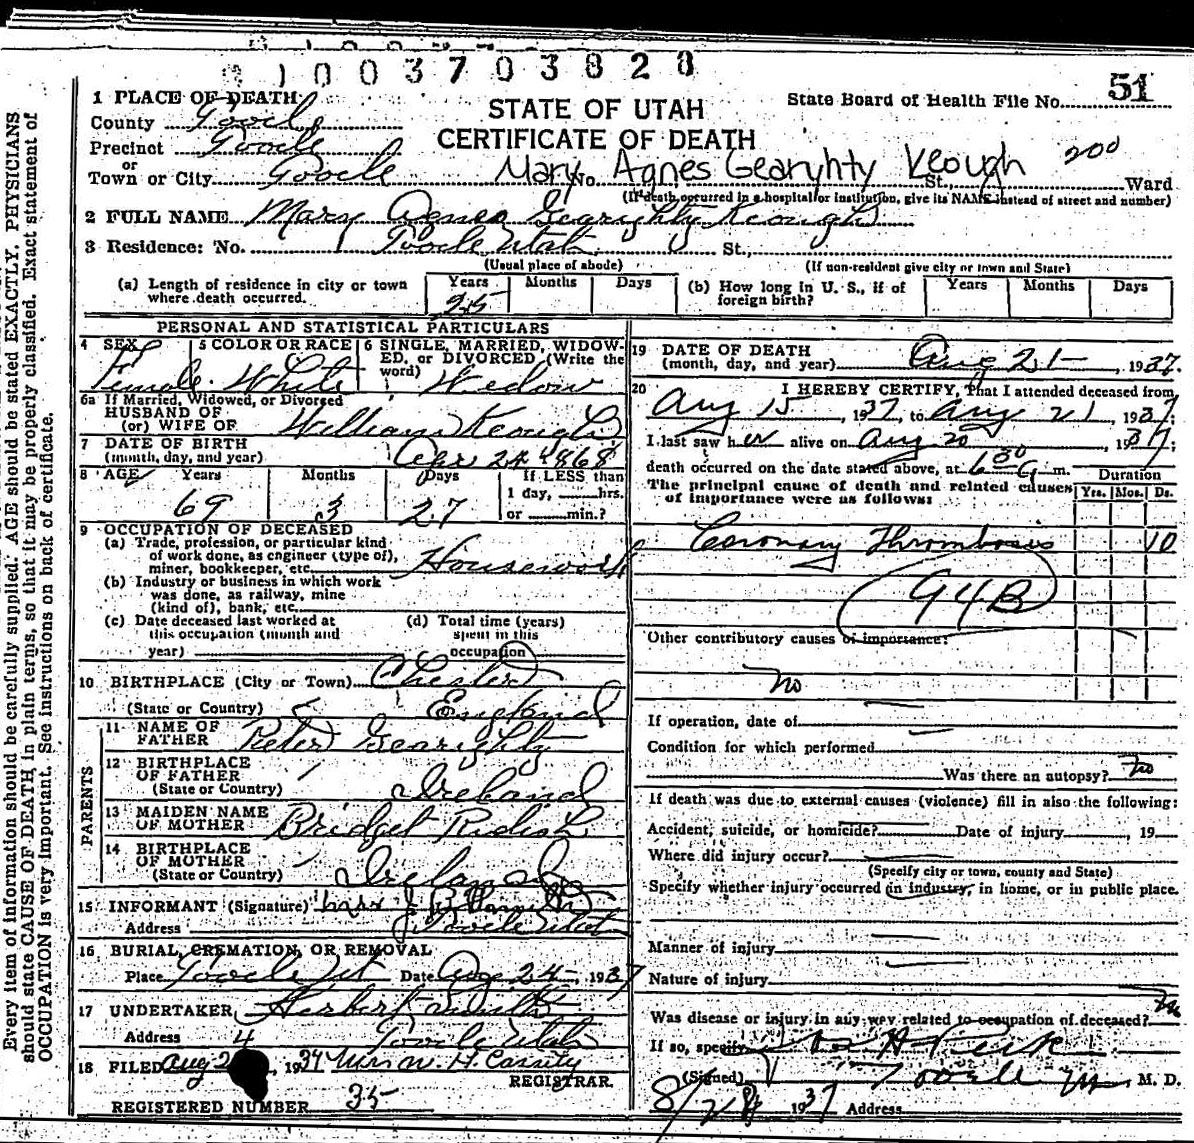 0 1 0 0 3 7 0 3 8 2 8
STATE OF UTAH
CERTIFICATE OF DEATH
State Board of Health File No. 51
1 PLACE OF DEATH
County Tooele
Precinct Tooele
or
Town or City Tooele No. St., Ward
Mary Agnes Gearyhty Keough 200
(If death occurred in a hospital or institution, give its NAME instead of street and number)
2 FULL NAME Mary Agnes Gearighty Keough
3 Residence: No. Tooele Utah St.,
(Usual place of abode) (If non-resident give city or town and State)
(a) Length of residence in city or town where death occurred. Years 25 Months Days
(b) How long in U. S., if of foreign birth? Years Months Days
PERSONAL AND STATISTICAL PARTICULARS
4 SEX Female
5 COLOR OR RACE White
6 SINGLE, MARRIED, WIDOWED, or DIVORCED (Write the word) Widow
6a If Married, Widowed, or Divorced
HUSBAND OF
(or) WIFE OF William Keough
7 DATE OF BIRTH
(month, day, and year) Apr 24 1868
8 AGE Years 69 Months 3 Days 27 If LESS than 1 day, hrs. or min.?
9 OCCUPATION OF DECEASED
(a) Trade, profession, or particular kind
of work done, as engineer (type of),
miner, bookkeeper, etc. Housework
(b) Industry or business in which work
was done, as railway, mine
(kind of), bank, etc.
(c) Date deceased last worked at
this occupation (month and
year)
(d) Total time (years)
spent in this
occupation
10 BIRTHPLACE (City or Town) Chester
(State or Country) England
PARENTS
11 NAME OF
FATHER Peter Gearighty
12 BIRTHPLACE
OF FATHER
(State or Country) Ireland
13 MAIDEN NAME
OF MOTHER Bridget
14 BIRTHPLACE
OF MOTHER
(State or Country) Ireland
15 INFORMANT (Signature) Mrs J
Address Tooele Utah
16 BURIAL, CREMATION, OR REMOVAL
Place Tooele Ut Date Aug 24 1937
17 UNDERTAKER Herbert
Address Tooele Utah
18 FILED Aug 2 , 1937 Mrs W. H. Cassity
REGISTRAR.
REGISTERED NUMBER 35
19 DATE OF DEATH
(month, day, and year) Aug 21 , 1937.
20 I HEREBY CERTIFY, That I attended deceased from
Aug 15, 1937, to Aug 21 1937.
I last saw her alive on Aug 20, 1937.
death occurred on the date stated above, at 6:30 a m.
The principal cause of death and related causes
of importance were as follows:
Duration
Yrs. Mos. Ds.
Coronary Thrombosis 10
94B
Other contributory causes of importance:
No
If operation, date of
Condition for which performed
Was there an autopsy? No
If death was due to external causes (violence) fill in also the following:
Accident, suicide, or homicide? Date of injury , 19
Where did injury occur?
(Specify city or town, county and State)
Specify whether injury occurred in industry, in home, or in public place.
Manner of injury
Nature of injury
Was disease or injury in any way related to occupation of deceased? No
If so, specify
(Signed) M. D.
Address
Every item of information should be carefully supplied. AGE should be stated EXACTLY. PHYSICIANS
should state CAUSE OF DEATH in plain terms, so that it may be properly classified. Exact statement of
OCCUPATION is very important. See instructions on back of certificate.